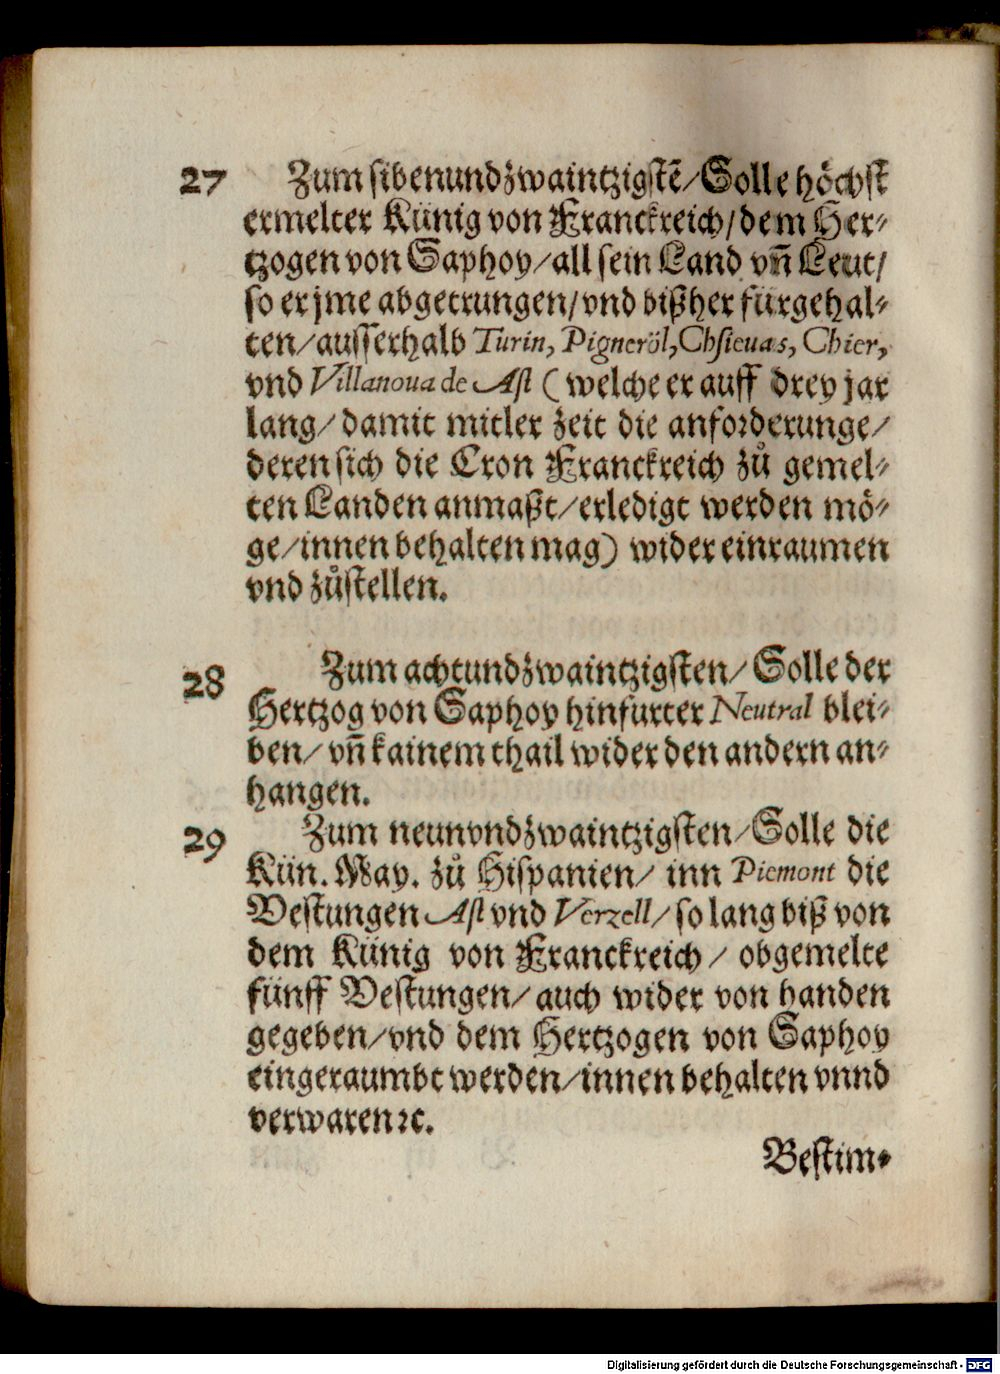 27 Zum sibenundzwaintzigstẽ/ Solle höchst
ermelter Künig von Franckreich/ dem Her⸗
tzogen von Saphoy/ all sein Land vñ Leut/
so er jme abgetrungen/ vnd bißher fürgehal⸗
ten/ ausserhalb Turin, Pigneröl, Chsieuas, Chier,
vnd Villanoua de Ast (welche er auff drey jar
lang/ damit mitler zeit die anforderunge/
deren sich die Cron Franckreich zů gemel⸗
ten Landen anmaßt/ erledigt werden mö⸗
ge/ innen behalten mag) wider einraumen
vnd zůstellen.
28 Zum achtundzwaintzigsten/ Solle der
Hertzog von Saphoy hinfurter Neutral blei⸗
ben/ vñ kainem thail wider den andern an⸗
hangen.
29 Zum neunvndzwaintzigsten/ Solle die
Kün. May. zů Hispanien/ inn Piemont die
Vestungen Ast vnd Verzell/ so lang biß von
dem Künig von Franckreich/ obgemelte
fünff Vestungen/ auch wider von handen
gegeben/ vnd dem Hertzogen von Saphoy
eingeraumbt werden/ innen behalten vnnd
verwaren ꝛc.
Bestim⸗
Digitalisierung gefördert durch die Deutsche Forschungsgemeinschaft - DFG